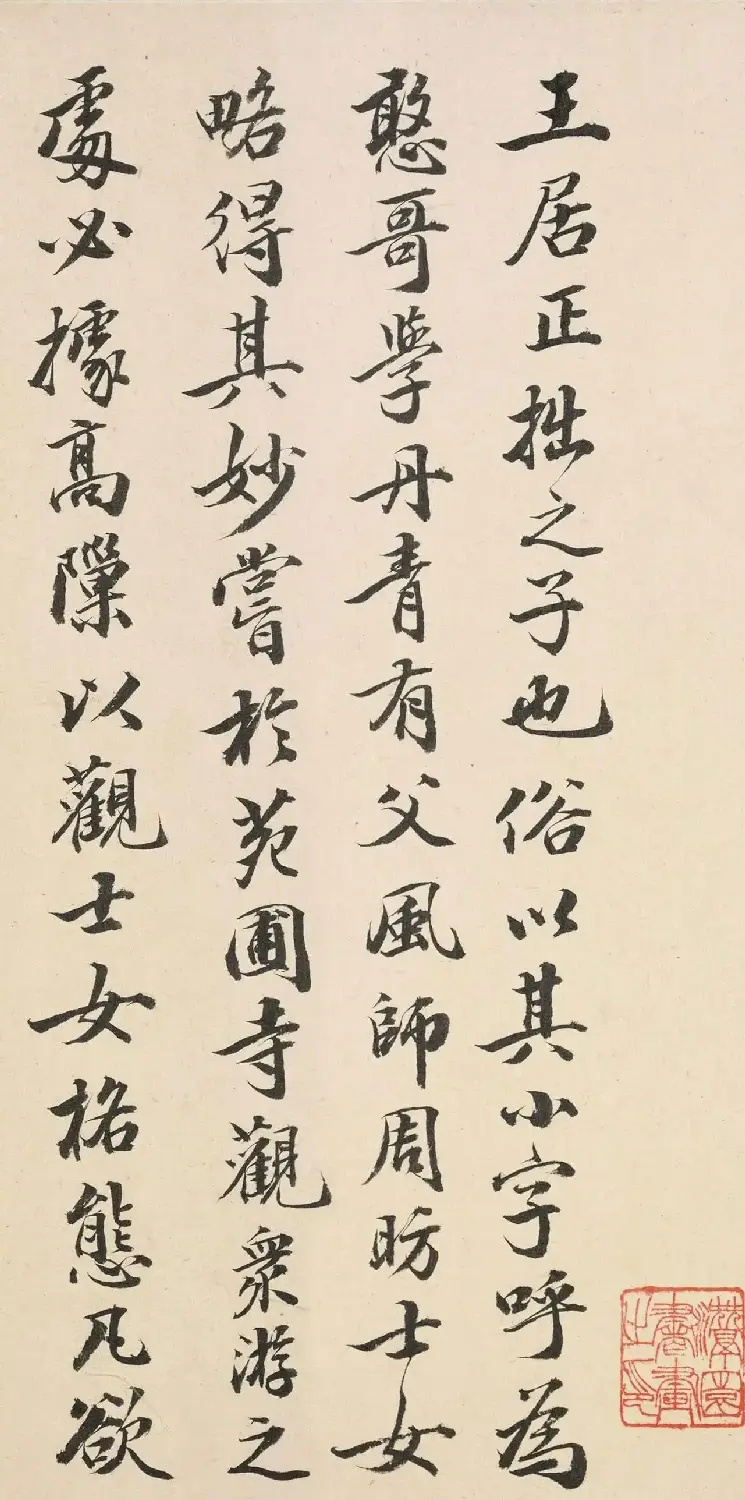 王居正拙之子也俗以其小字呼為
憨哥學丹青有父風師周昉士女
略得其妙嘗於苑圃寺觀衆游之
處必據高隙以觀士女格態凡欲